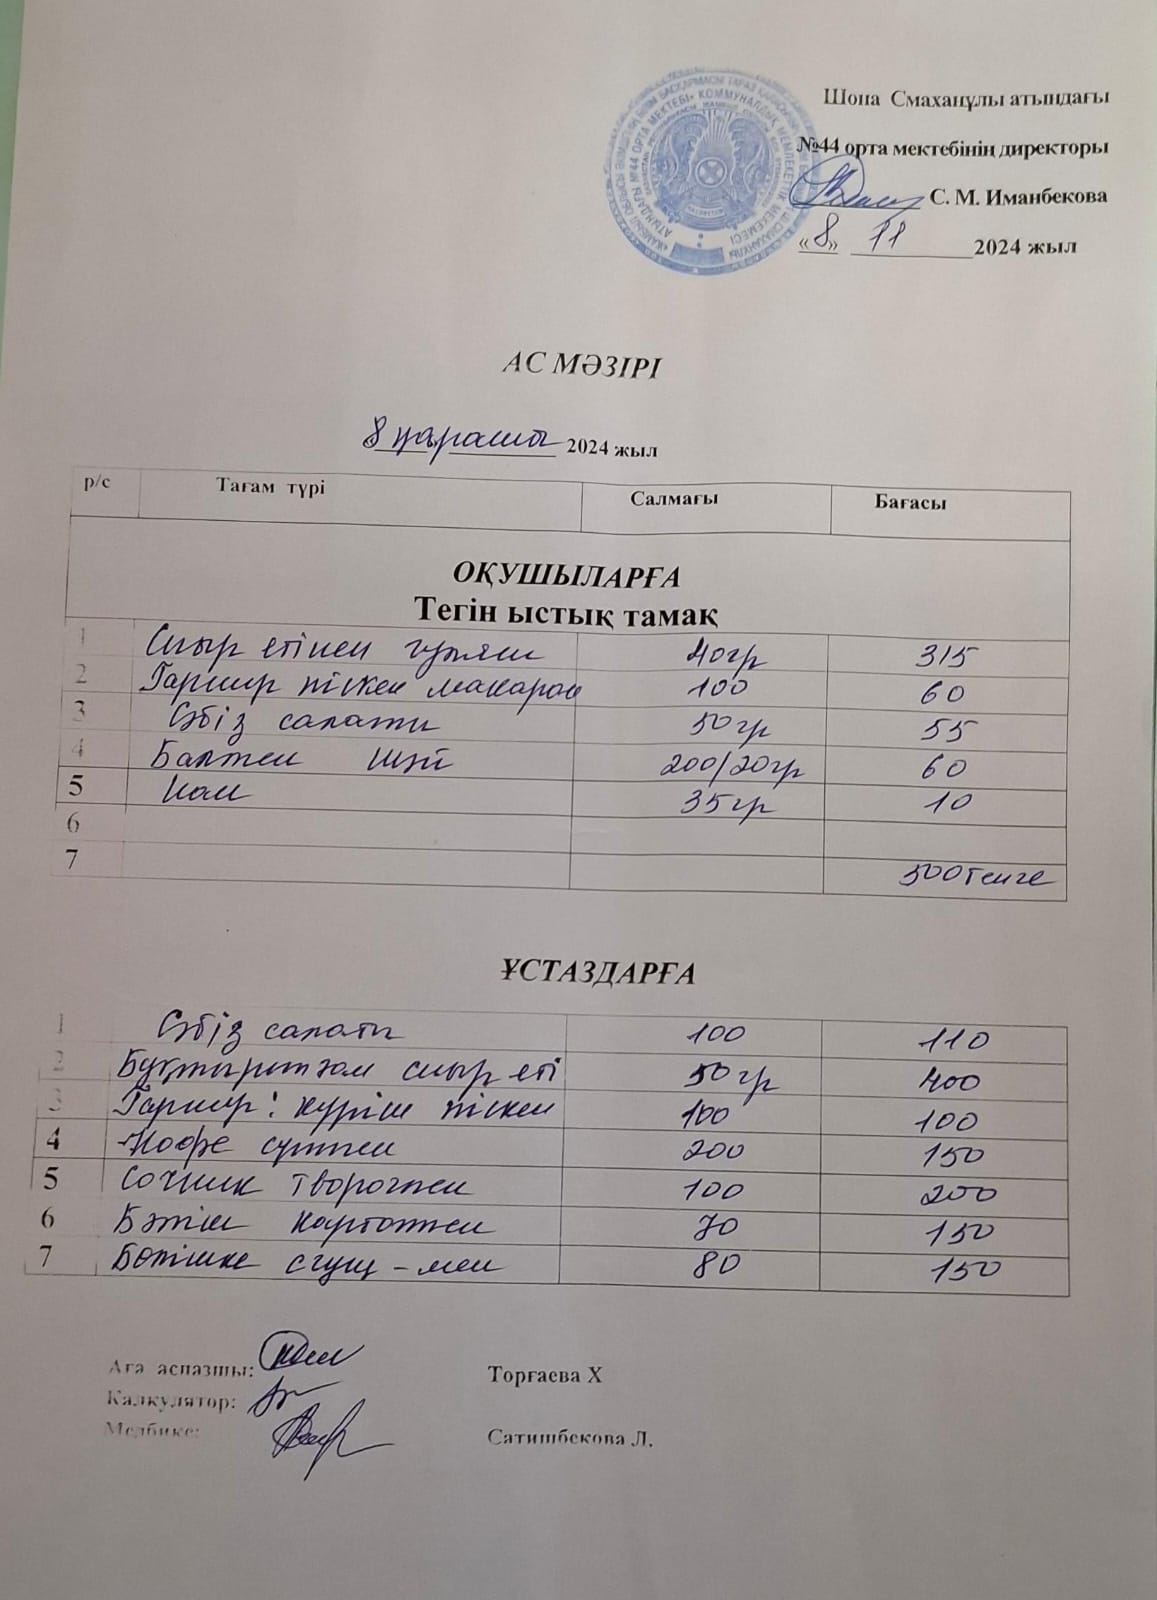 Шона Смаханұлы атындағы
№44 орта мектебінің директоры
С. М. Иманбекова
«8» 11 2024 жыл
АС МӘЗІРІ
8 қараша 2024 жыл
р/с Тағам түрі Салмағы Бағасы
ОҚУШЫЛАРҒА
Тегін ыстық тамақ
1 Сиыр етінен гуляш 40гр 315
2 Гарнир піскен макарон 100 60
3 Сәбіз салаты 50гр 55
4 Балмен шәй 200/20гр 60
5 Нан 35гр 10
6
7 500теңге
ҰСТАЗДАРҒА
1 Сәбіз салаты 100 110
2 Бұқтырылған сиыр еті 50гр 400
3 Гарнир: күріш піскен 100 100
4 Кофе сүтпен 200 150
5 Сочник творогпен 100 200
6 Бәтіш картоппен 70 150
7 Бөлішке сгущ-мен 80 150
Аға аспазшы: Торғаева Х
Калкулятор:
Медбике: Сатишбекова Л.